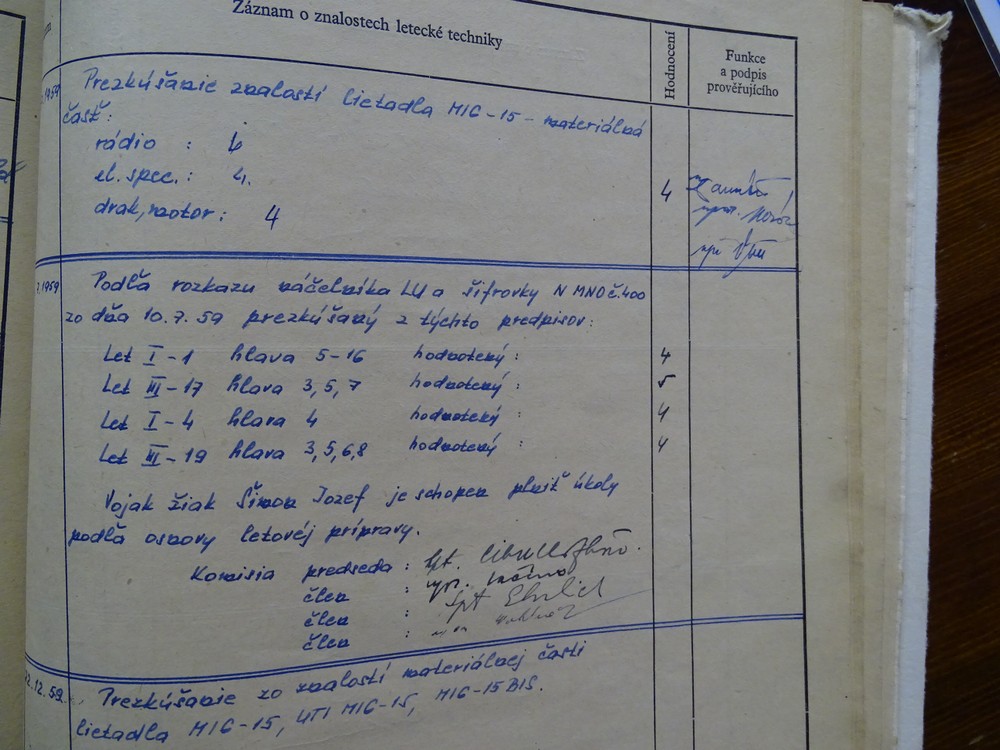 Záznam o znalostech letecké techniky
Hodnocení
Funkce
a podpis
prověřujícího
1959
Prezkúšanie znalostí lietadla MIG-15 - materiálná
časť:
rádio : 4
el. spec.: 4.
drak, motor : 4
4
1959
Podľa rozkazu náčelníka LU a šifrovky N MNO č.400
zo dňa 10.7.59 prezkúšaný z týchto predpisov:
Let I-1 hlava 5-16 hodnotený : 4
Let III-17 hlava 3,5,7 hodnotený : 5
Let I-4 hlava 4 hodnotený : 4
Let III-19 hlava 3,5,6,8 hodnotený : 4
Vojak žiak Šimon Jozef je schopen plniť úkoly
podľa osnovy letovej prípravy.
Komisia predseda :
člen :
člen : Ehrlich
člen :
12.59
Prezkúšanie zo znalostí materiálnej časti
lietadla MIG-15, UTI MIG-15, MIG-15 BIS.